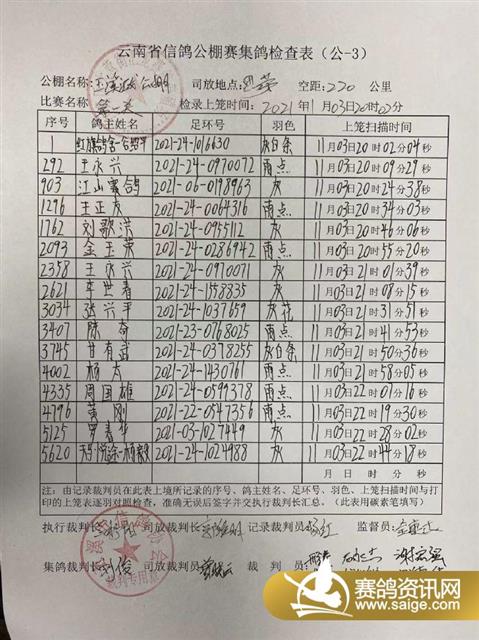 云南省信鸽公棚赛集鸽检查表（公-3）
公棚名称： 司放地点： 空距：220 公里
比赛名称：第一关 检录上笼时间：2021年11月03日20时02分
序号 鸽主姓名 足环号 羽色 上笼扫描时间
1 红旗鸽舍- 2021-24-1016630 灰白条 11月03日20时02分04秒
292 王永兴 2021-24-0970072 雨点 11月03日20时09分29秒
903 江山赛鸽 2021-06-0198963 灰 11月03日20时24分38秒
1296 王正友 2021-24-0064316 雨点 11月03日20时34分03秒
1762 刘歌洪 2021-24-0955112 灰 11月03日20时46分06秒
2093 金玉荣 2021-24-0286942 雨点 11月03日20时55分20秒
2358 王永兴 2021-24-0970071 灰 11月03日21时01分39秒
2621 李世春 2021-24-1158835 灰 11月03日21时08分15秒
3034 张兴平 2021-24-1037659 灰花 11月03日21时31分51秒
3407 陈奇 2021-23-0768025 雨点 11月03日21时41分53秒
3745 甘有武 2021-24-0378255 灰白条 11月03日21时50分36秒
4002 杨大 2021-24-1430761 雨点 11月03日21时58分05秒
4335 周国雄 2021-24-0599378 雨点 11月03日22时01分16秒
4796 黄刚 2021-22-0547356 雨点 11月03日22时19分30秒
5125 罗春华 2021-03-1027449 灰 11月03日22时28分02秒
5620 2021-24-1024988 灰 11月03日22时44分18秒
月 日 时 分 秒
注：由记录裁判员在此表上填所记录的序号、鸽主姓名、足环号、羽色、上笼扫描时间与打
印的上笼表逐羽对照检查，准确无误后签字并交执行裁判长汇总。（此表用碳素笔填写）
执行裁判长： 司放裁判长： 记录裁判员： 监督员：
集鸽裁判长：刘俊 司放裁判员： 裁 判 员：
裁判专用章
赛鸽资讯网
www.saige.com